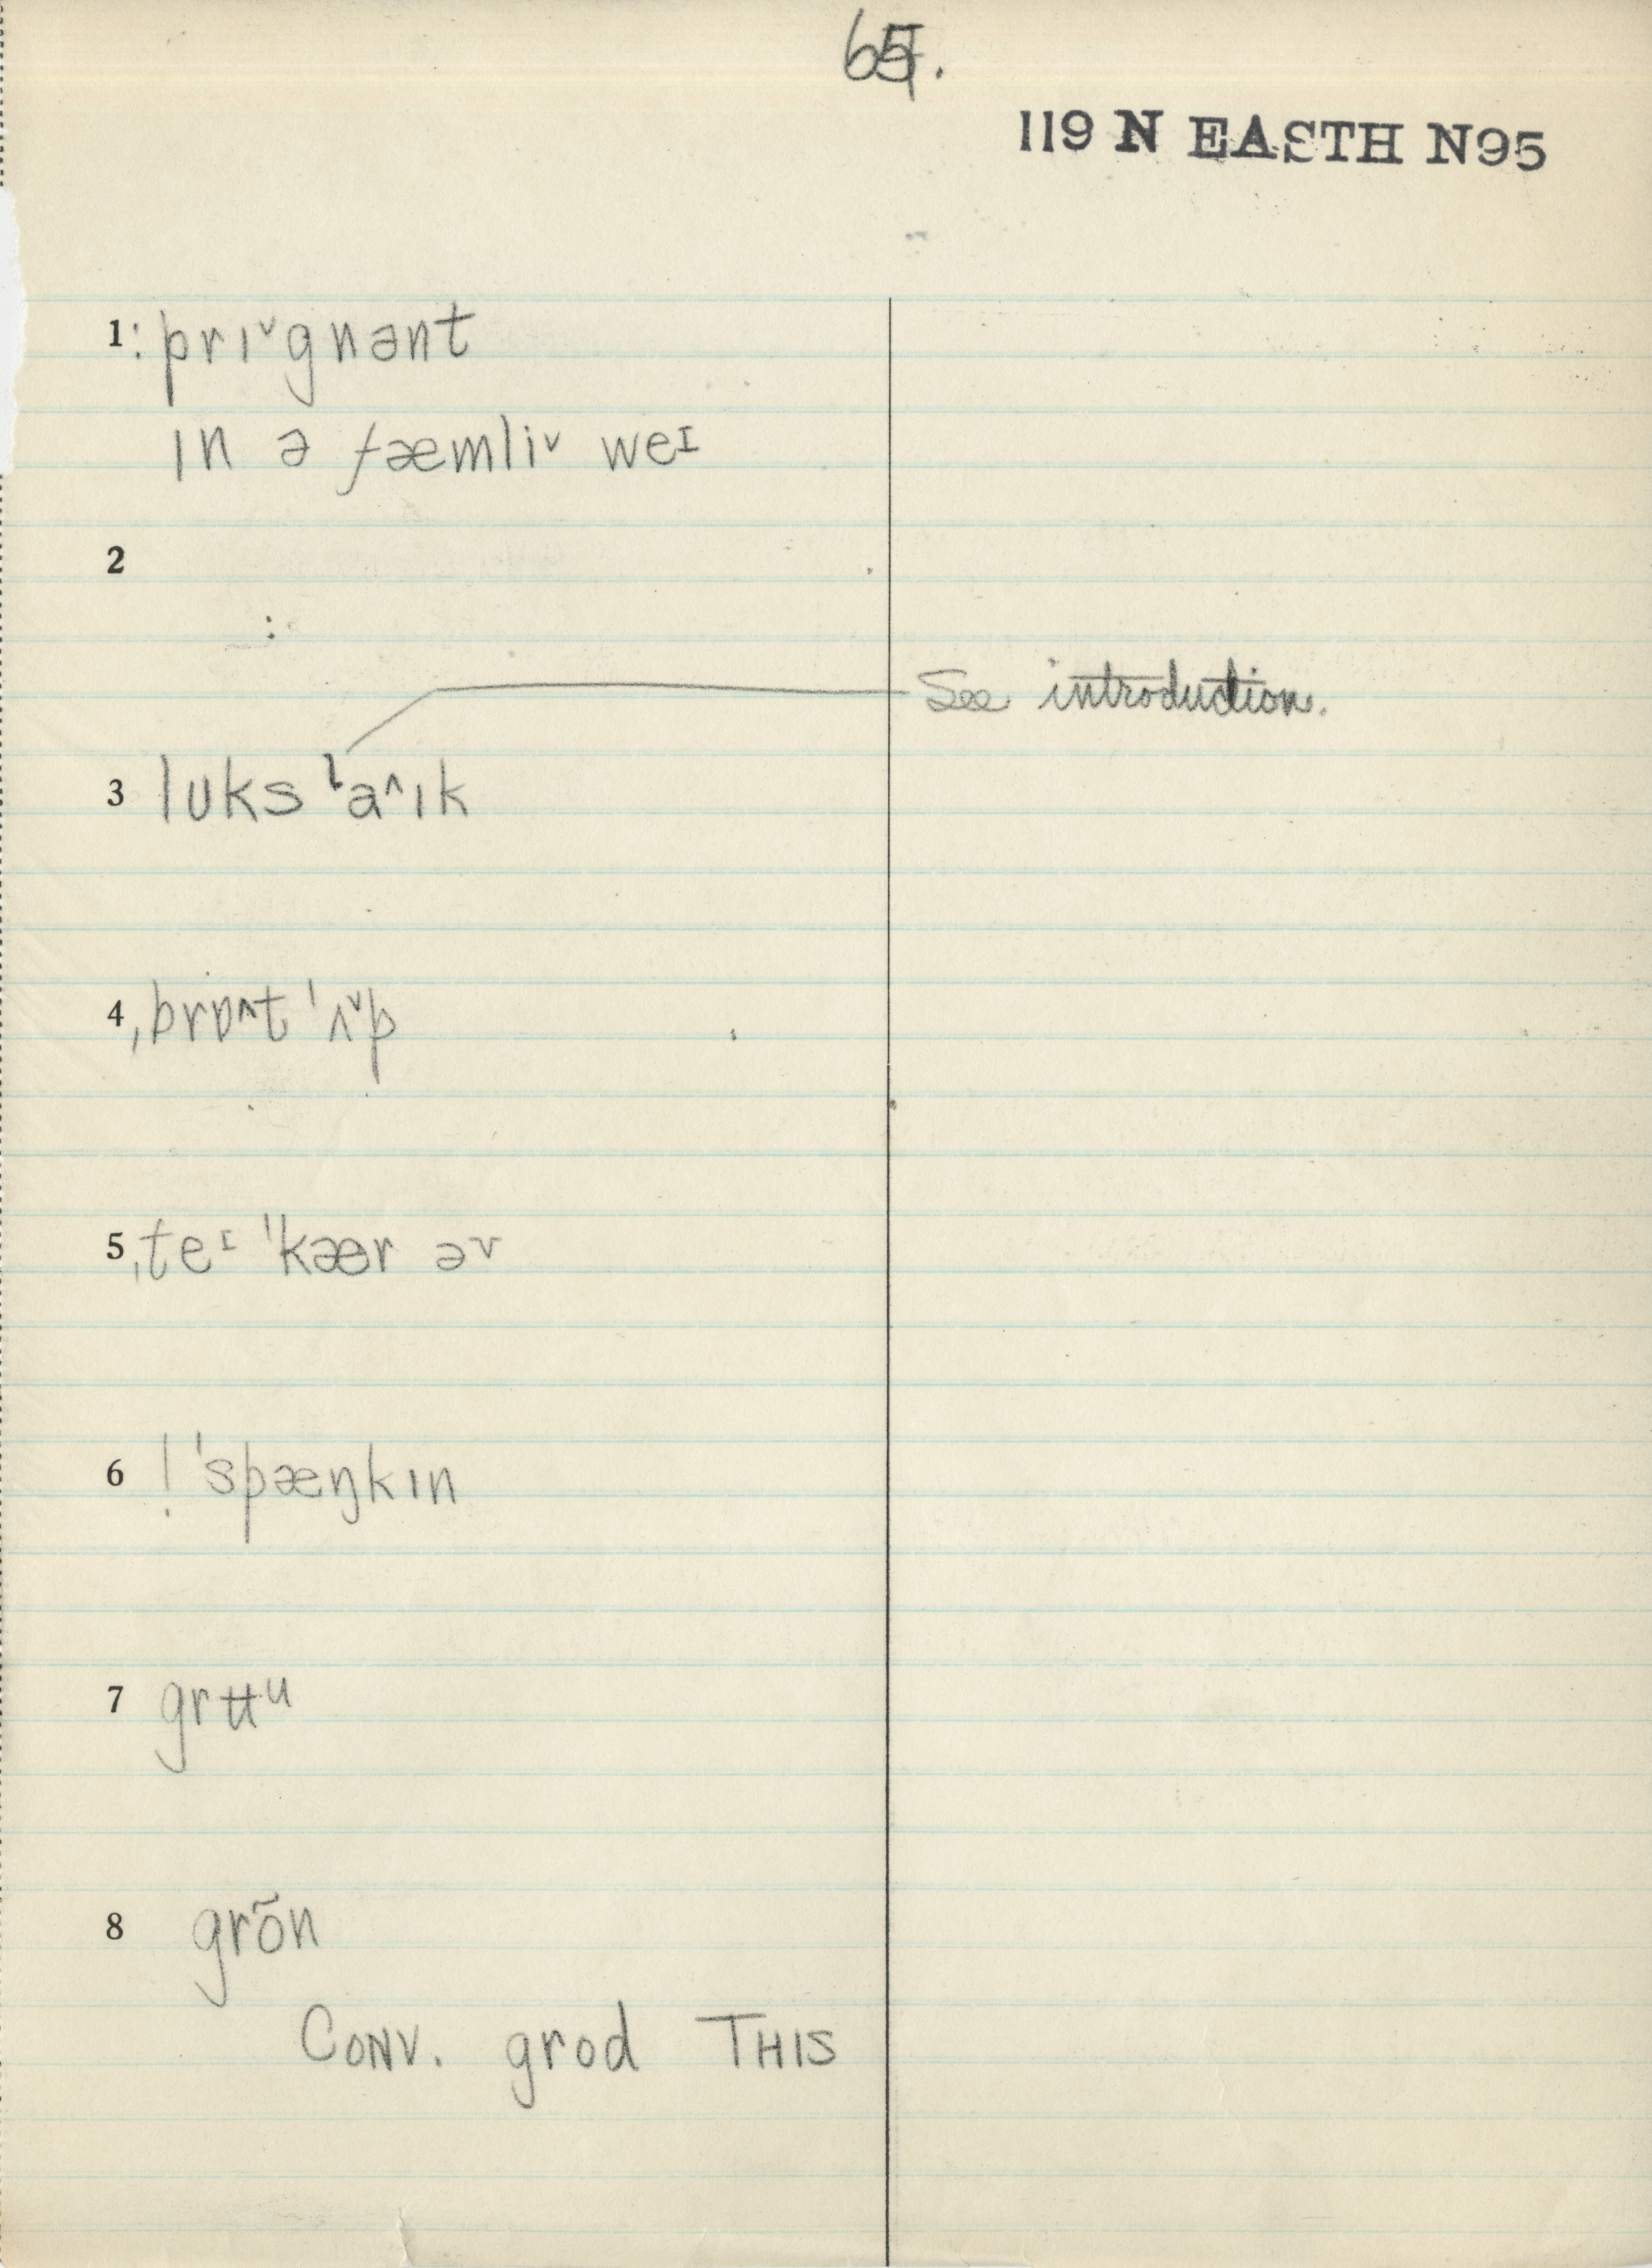 65.
119 N EASTH N95
1 : prɪ˅gnənt
ɪn ə fæmli˅ weᶦ
2
:
See introduction.
3 lʊks ˡa˄ɪk
4 ˌbrɒ˄t ˈʌ˅p
5 ˌteᶦ ˈkær əv
6 ! ˈspæŋkɪn
7 grʉᵘ
8 grõn
CONV. grod THIS